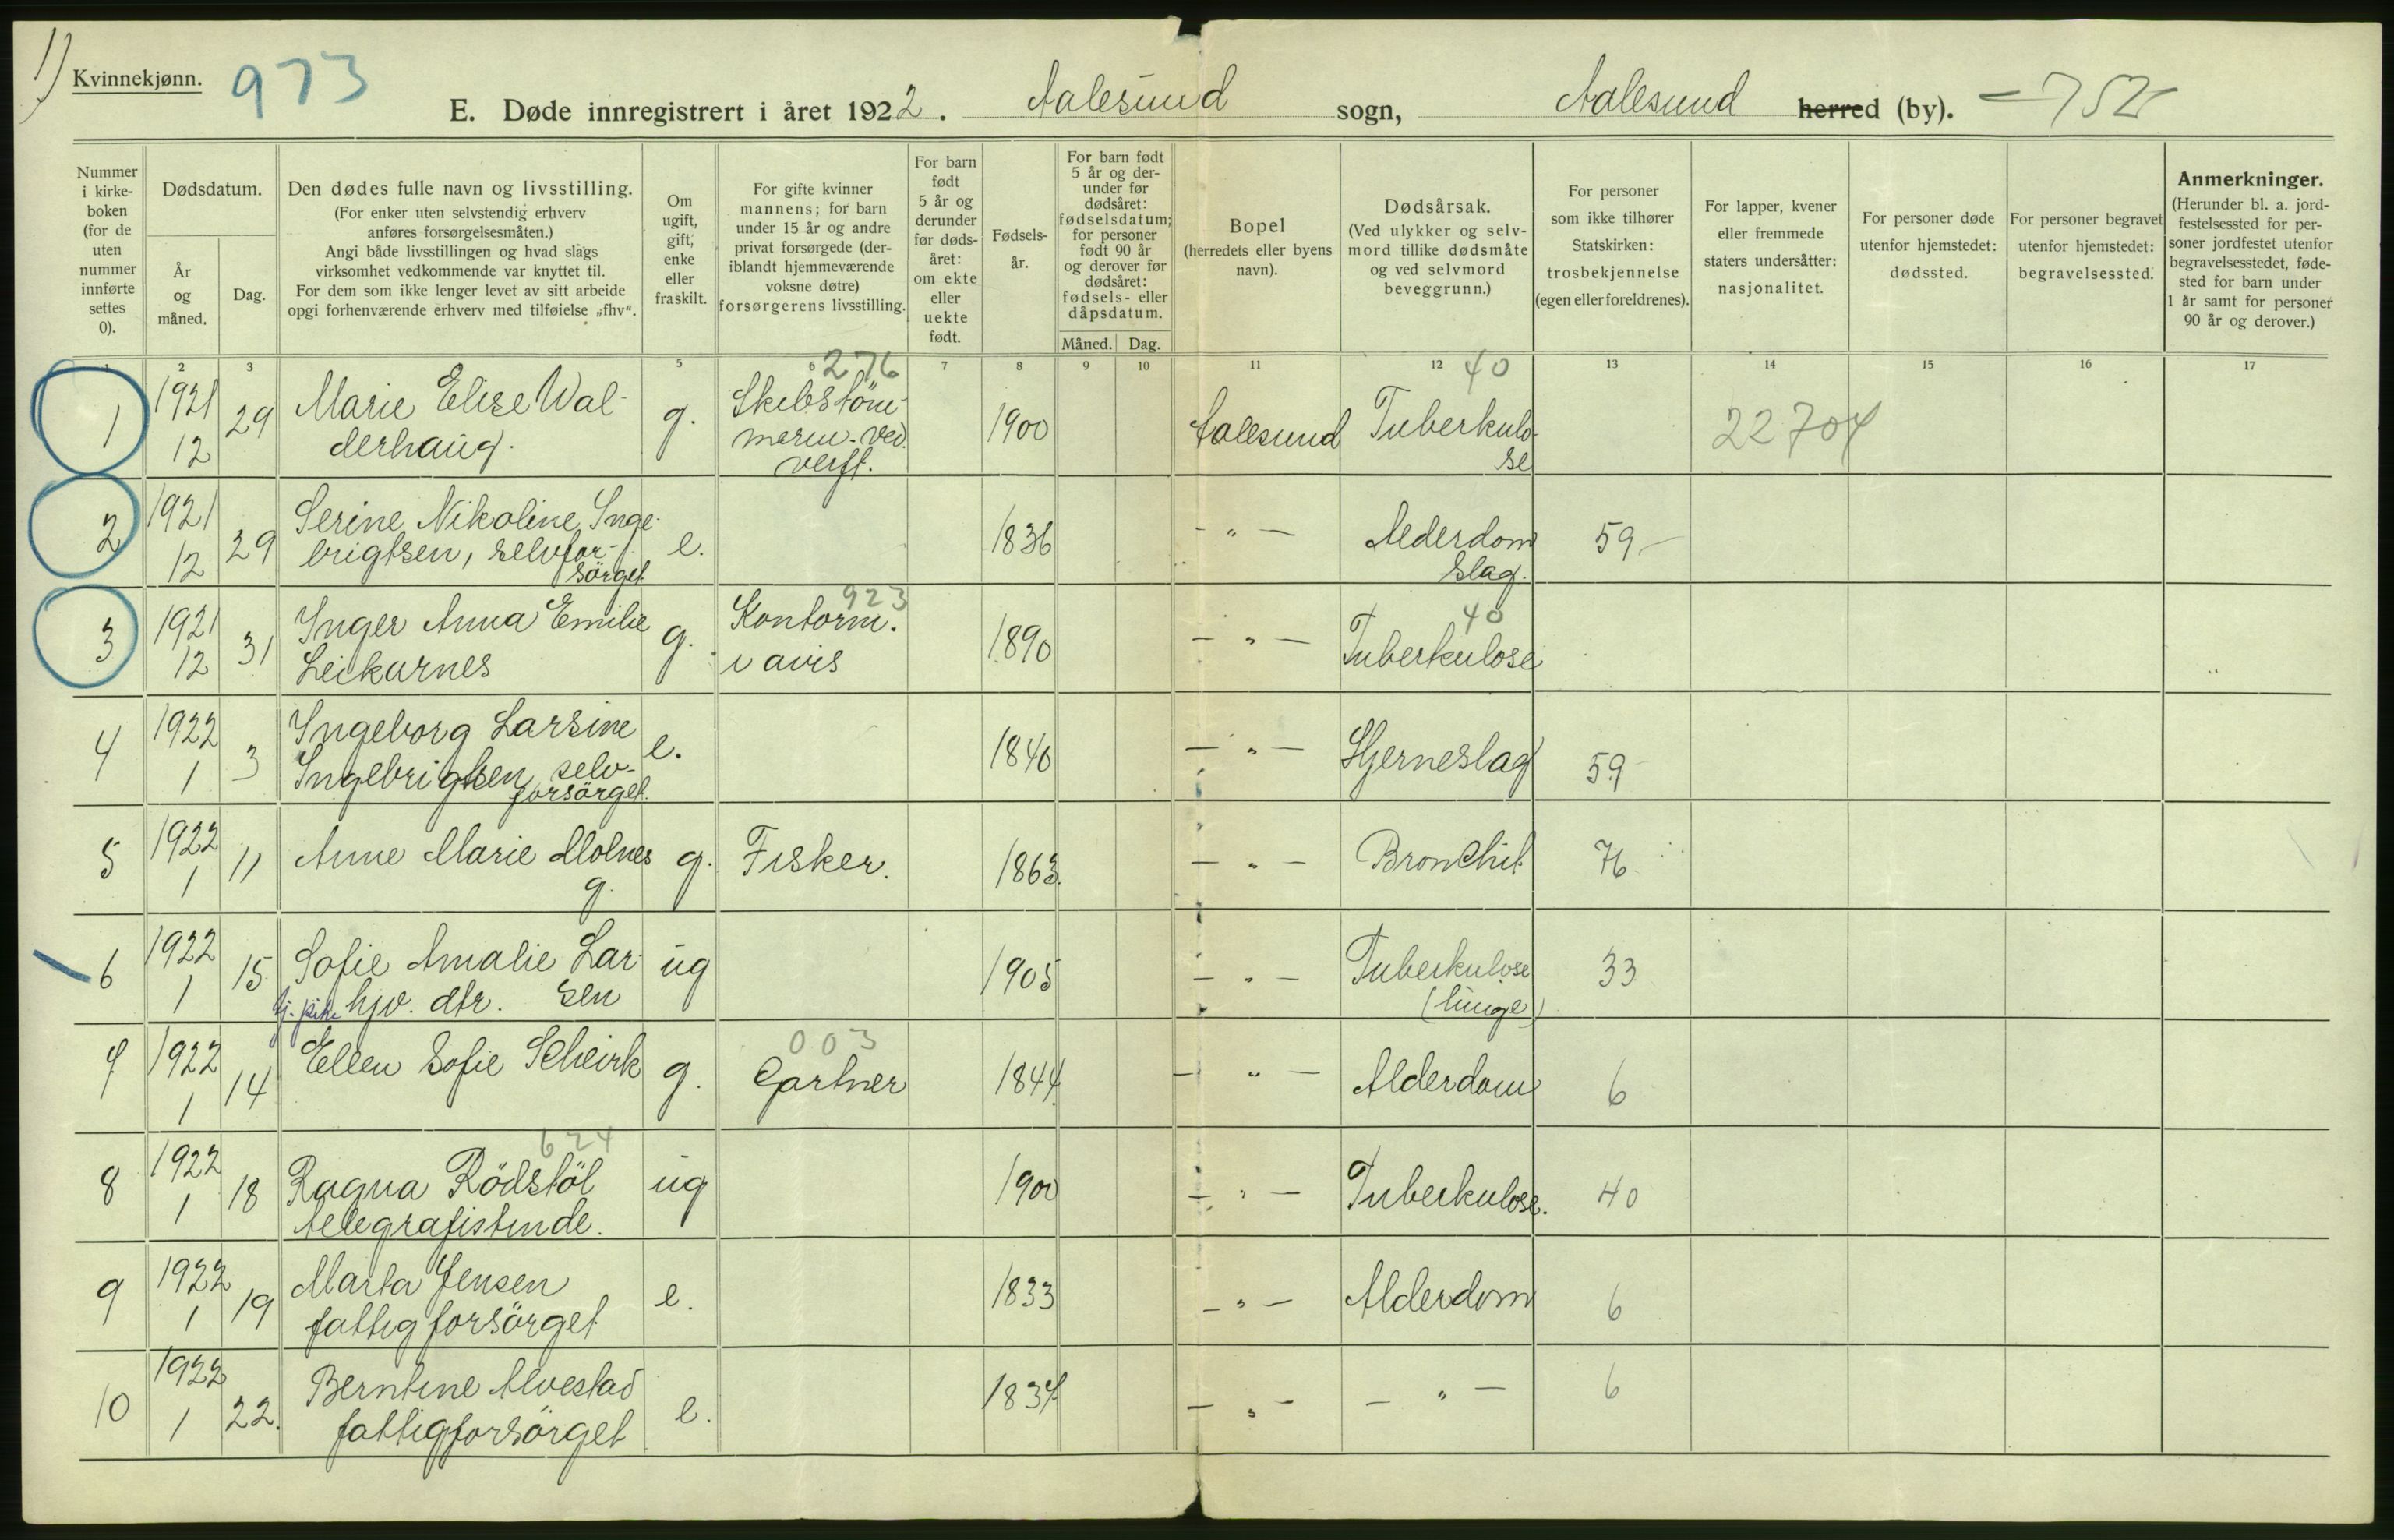 1)
Kvinnekjønn.
973
E. Døde innregistrert i året 1922. Aalesund sogn, Aalesund herred (by). 752
Nummer i kirke-boken (for de uten nummer innførte settes 0).
Dødsdatum.
År og måned.
Dag.
Den dødes fulle navn og livsstilling.
(For enker uten selvstendig erhverv
anføres forsørgelsesmåten.)
Angi både livsstillingen og hvad slags
virksomhet vedkommende var knyttet til.
For dem som ikke lenger levet av sitt arbeide
opgi forhenværende erhverv med tilføielse „fhv“.
Om ugift, gift, enke eller fraskilt.
For gifte kvinner
mannens; for barn
under 15 år og andre
privat forsørgede (der-
iblandt hjemmeværende
voksne døtre)
forsørgerens livsstilling.
For barn født 5 år og derunder før døds-året: om ekte eller uekte født.
Fødsels-år.
For barn født
5 år og der-
under før
dødsåret:
fødselsdatum;
for personer
født 90 år
og derover før
dødsåret:
fødsels- eller
dåpsdatum.
Måned. Dag.
Bopel
(herredets eller byens
navn).
Dødsårsak.
(Ved ulykker og selv-
mord tillike dødsmåte
og ved selvmord
beveggrunn.)
For personer
som ikke tilhører
Statskirken:
trosbekjennelse
(egen eller foreldrenes).
For lapper, kvener
eller fremmede
staters undersåtter:
nasjonalitet.
For personer døde
utenfor hjemstedet:
dødssted.
For personer begravet
utenfor hjemstedet:
begravelsessted.
Anmerkninger.
(Herunder bl. a. jord-
festelsessted for per-
soner jordfestet utenfor
begravelsesstedet, føde-
sted for barn under
1 år samt for personer
90 år og derover.)
1 2 3 5 6 7 8 9 10 11 12 13 14 15 16 17
276 40
1 1921 12 29 Marie Elise Wal-
derhaug. g. Skibstöm-
merm. ved
verft. 1900 Aalesund Tuberkulo-
se 22704
2 1921 12 29 Serine Nikoline Inge-
brigtsen, selvfor-
sörget e. 1836 - " - Alderdom
slag. 59
3 1921 12 31 Inger Anna Emilie
Leikarnes g. 923
Kontorm.
i avis 1890 - " - 40
Tuberkulose
4 1922 1 3 Ingeborg Larsine
Ingebrigtsen selv-
forsörget. e. 1840 - " - Hjerneslag 59
5 1922 1 11 Anne Marie Molnes
g. g. Fisker. 1863. - " - Bronchit 76
6 1922 1 15 Sofie Amalie Lar-
sen hjv. dtr. ug 1905 - " - Tuberkulose
(lunge) 33
tj. pike
7 1922 1 14 Ellen Sofie g. 003
Gartner 1844 - " - Alderdom 6
8 1922 1 18 624
Ragna Rödstöl
telegrafistinde. ug 1900 - " - Tuberkulose. 40
9 1922 1 19 Marta Jensen
fattigforsörget e. 1833 - " - Alderdom 6
10 1922 1 22. Berntine Alvestad
fattigforsörget e. 1837 - " - - " - 6